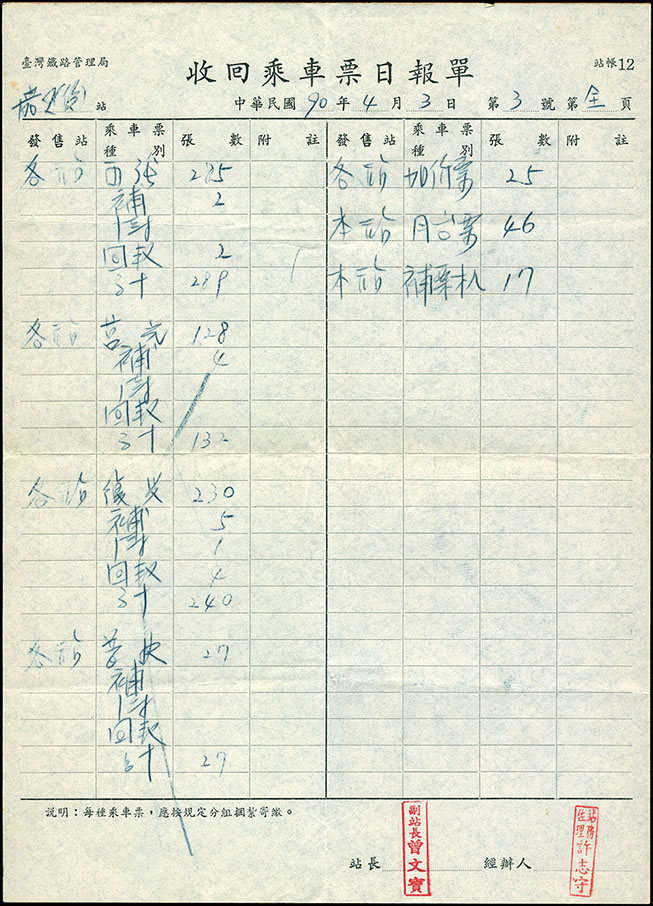 臺灣鐵路管理局
站帳12
收回乘車票日報單
站 中華民國 90 年 4 月 3 日 第 3 號 第 全 頁
發售站 乘車票種別 張數 附註 發售站 乘車票種別 張數 附註
各站 285 各站 25
補 2
本站 月台票 46
回數 2
計 289 本站 補票机 17
各站 莒光 128
補 4
回數
計 132
各站 復興 230
補 5
1
回數 4
計 240
各站 普快 27
補
回數
計 27
說明：每種乘車票，應按規定分組捆紮寄繳。
站長 副站長 曾文寶 經辦人 站務佐理 許志守